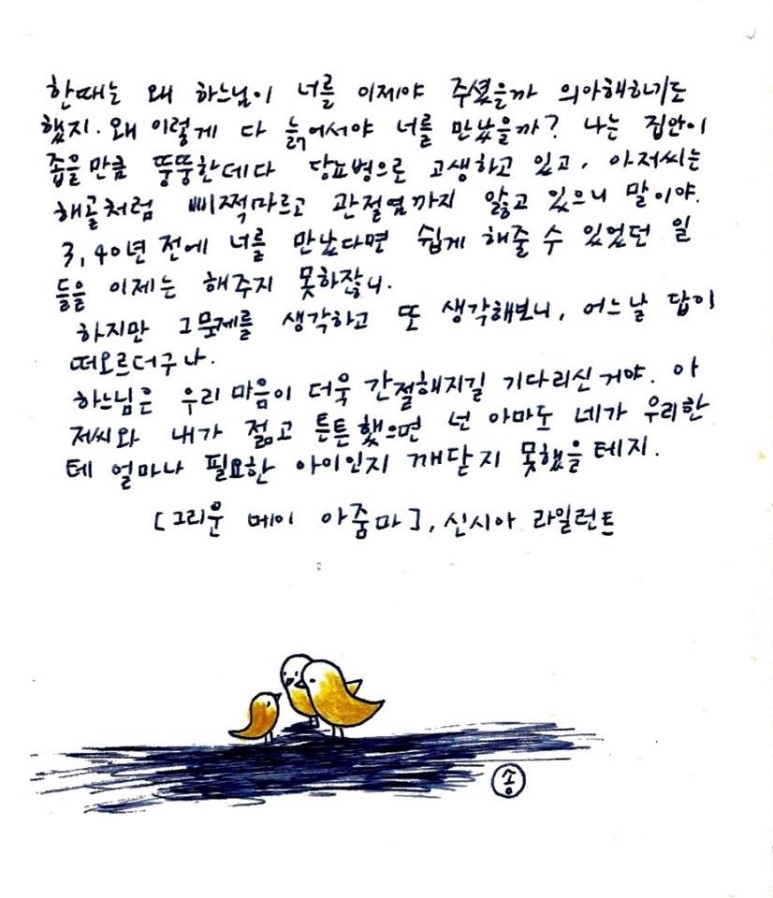 한때는 왜 하느님이 너를 이제야 주셨을까 의아해하기도
했지. 왜 이렇게 다 늙어서야 너를 만났을까? 나는 집안이
좁을만큼 뚱뚱한데다 당뇨병으로 고생하고 있고, 아저씨는
해골처럼 삐쩍마르고 관절염까지 앓고 있으니 말이야.
3, 40년 전에 너를 만났다면 쉽게 해줄 수 있었던 일
들을 이제는 해주지 못하잖니.
하지만 그문제를 생각하고 또 생각해보니, 어느날 답이
떠오르더구나.
하느님은 우리 마음이 더욱 간절해지길 기다리신거야. 아
저씨와 내가 젊고 튼튼했으면 넌 아마도 네가 우리한
테 얼마나 필요한 아이인지 깨닫지 못했을테지.
[그리운 메이 아줌마], 신시아 라일런트
송